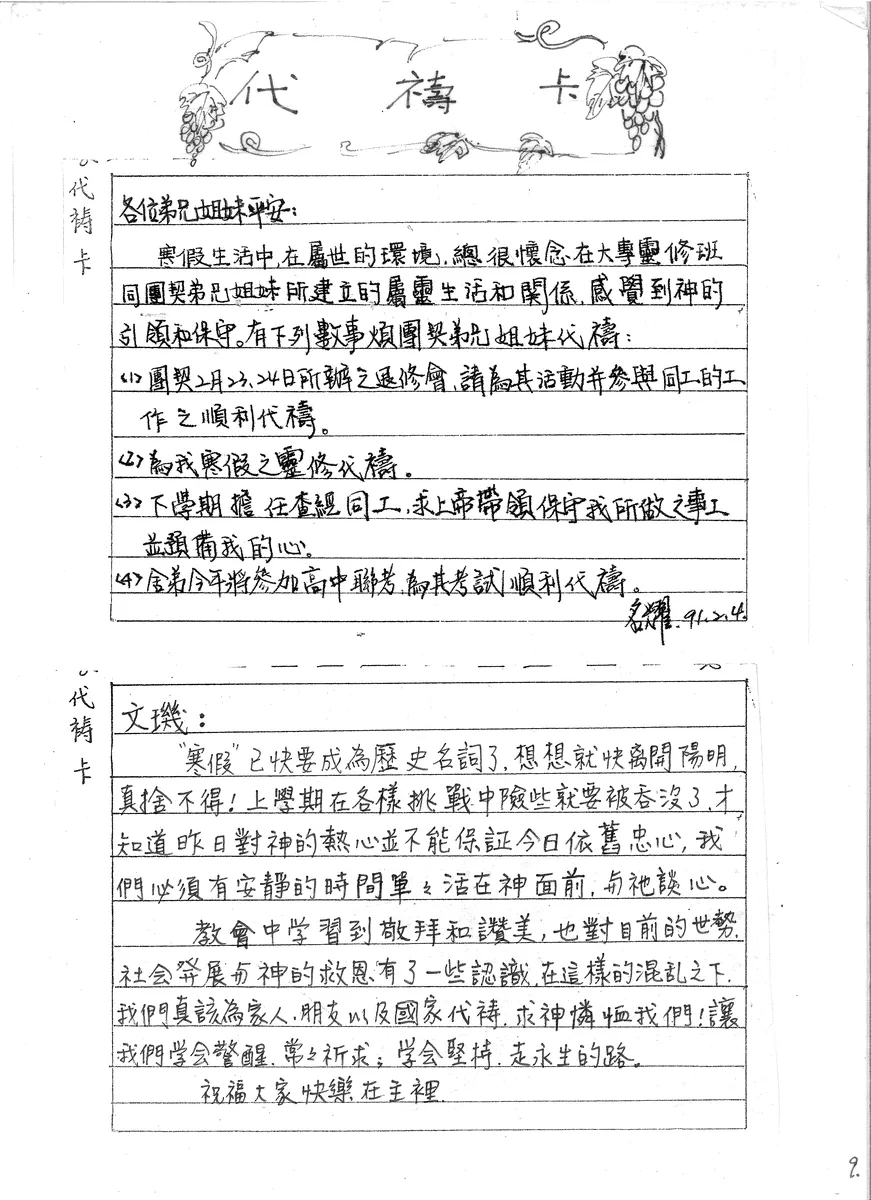 代禱卡
代禱卡
各位弟兄姐妹平安：
寒假生活中,在屬世的環境,總很懷念在大專靈修班
同團契弟兄姐妹所建立的屬靈生活和關係,感覺到神的
引領和保守。有下列數事煩團契弟兄姐妹代禱：
(1)團契2月23、24日所辦之退修會,請為其活動并參與同工的工
作之順利代禱。
(2)為我寒假之靈修代禱。
(3)下學期擔任查經同工,求上帝帶領保守我所做之事工
並預備我的心。
(4)舍弟今年將參加高中聯考,為其考試順利代禱。
名耀.91.2.4.
代祷卡
文璣：
“寒假”已快要成為歷史名詞了,想想就快离開陽明,
真捨不得!上學期在各樣挑戰中險些就要被吞沒了,才
知道昨日對神的熱心並不能保証今日依舊忠心,我
們必須有安靜的時間單々活在神面前,与祂談心。
教會中学習到敬拜和讚美,也對目前的世勢.
社会発展与神的救恩有了一些認識,在這樣的混乱之下.
我們真該為家人.朋友以及國家代祷.求神憐恤我們!讓
我們学会警醒.常々祈求;学会堅持.走永生的路。
祝福大家快樂在主裡.
9.